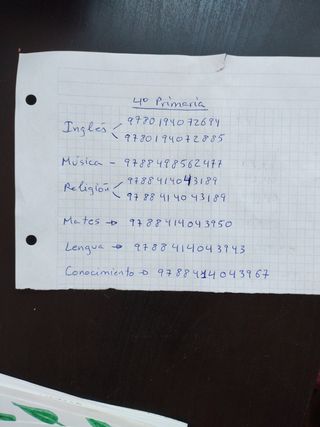 4º Primaria
Inglés < 9780194072694
9780194072885
Música - 9788498562477
Religión < 9788414043189
9788414043189
Mates → 9788414043950
Lengua → 9788414043943
Conocimiento → 9788414043967